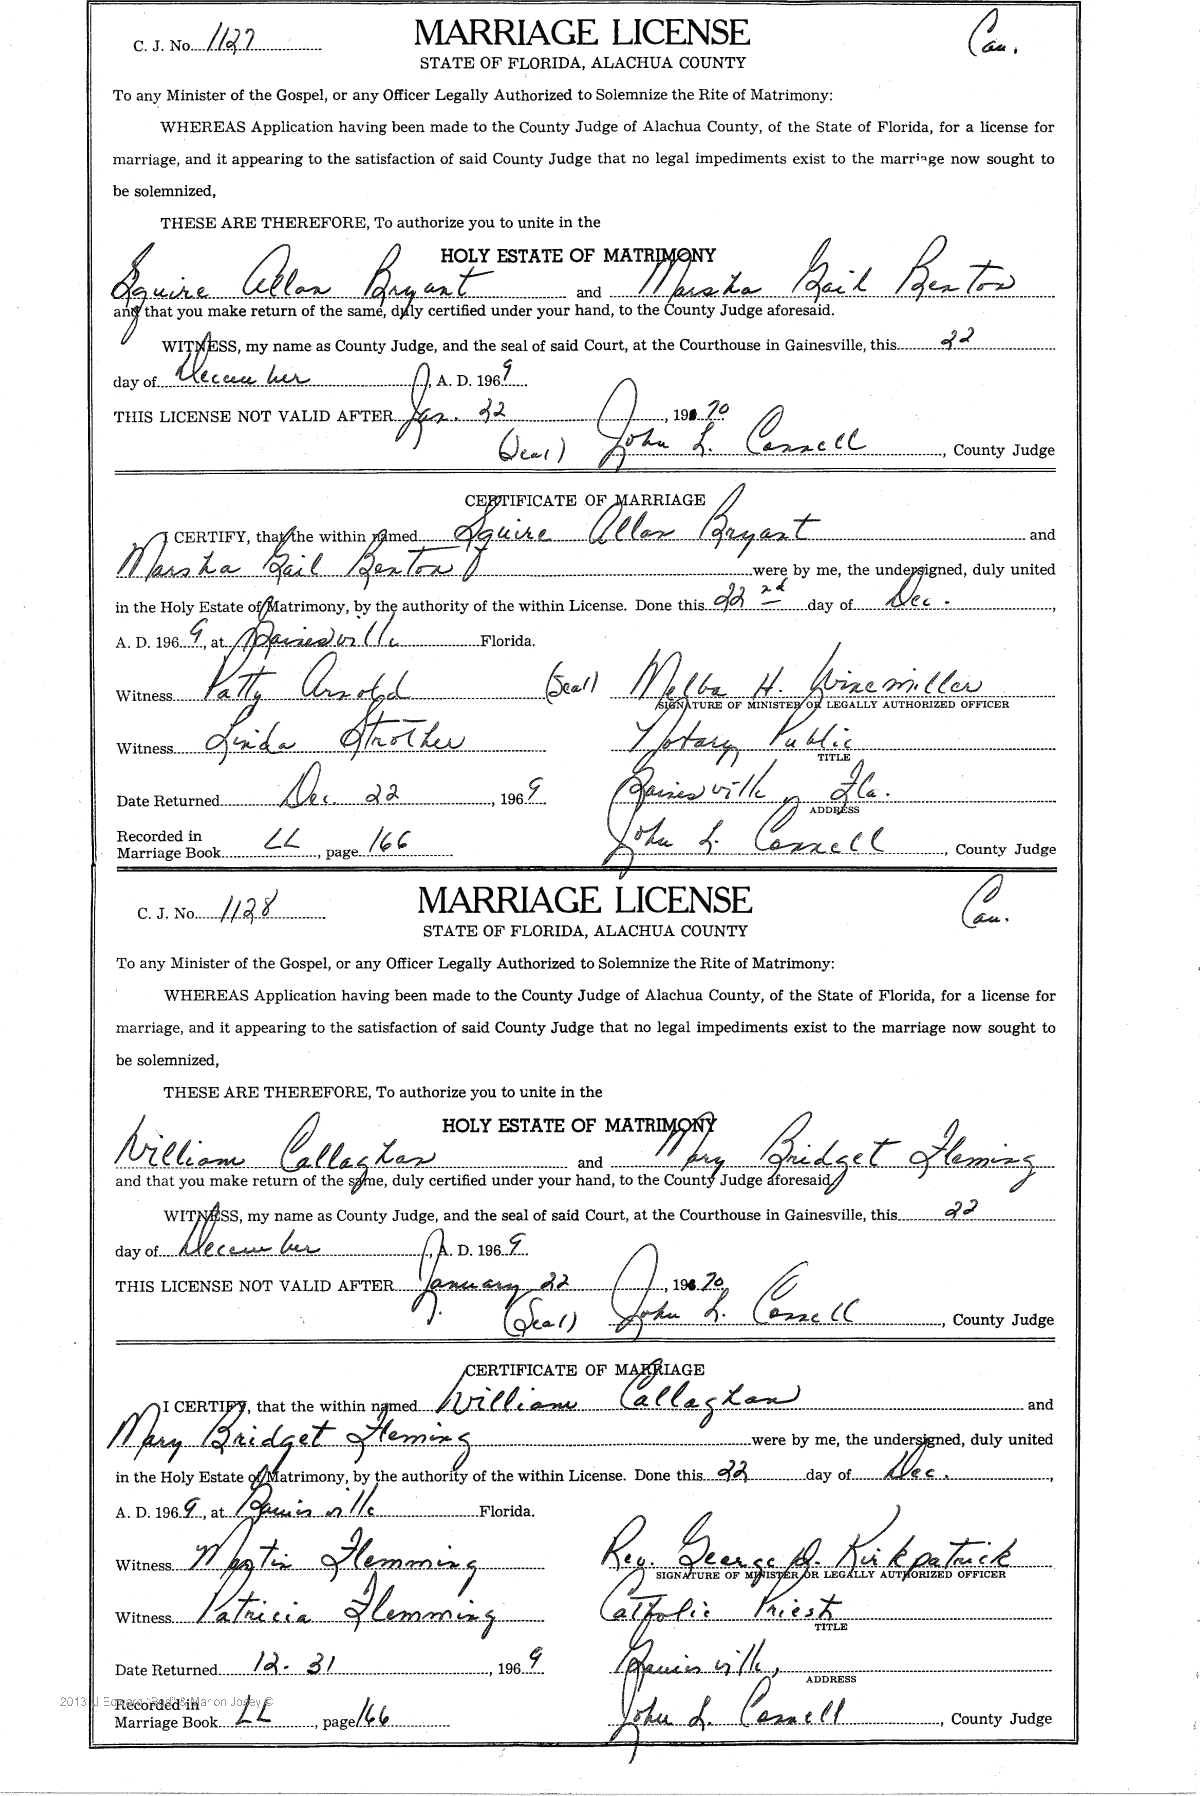 C. J. No. 1127 MARRIAGE LICENSE Cau.
STATE OF FLORIDA, ALACHUA COUNTY
To any Minister of the Gospel, or any Officer Legally Authorized to Solemnize the Rite of Matrimony:
WHEREAS Application having been made to the County Judge of Alachua County, of the State of Florida, for a license for
marriage, and it appearing to the satisfaction of said County Judge that no legal impediments exist to the marriage now sought to
be solemnized,
THESE ARE THEREFORE, To authorize you to unite in the
HOLY ESTATE OF MATRIMONY
Squire Allan Bryant and Marsha Gail Benton
and that you make return of the same, duly certified under your hand, to the County Judge aforesaid.
WITNESS, my name as County Judge, and the seal of said Court, at the Courthouse in Gainesville, this 22
day of December, A. D. 1969
THIS LICENSE NOT VALID AFTER Jan. 22, 1970
(Seal) John L. Connell, County Judge
CERTIFICATE OF MARRIAGE
I CERTIFY, that the within named Squire Allan Bryant and
Marsha Gail Benton were by me, the undersigned, duly united
in the Holy Estate of Matrimony, by the authority of the within License. Done this 22nd day of Dec.,
A. D. 1969, at Gainesville Florida.
Witness Patty Arnold (Seal) Melba H. Winemiller
SIGNATURE OF MINISTER OR LEGALLY AUTHORIZED OFFICER
Witness Linda Strother Notary Public
TITLE
Date Returned Dec. 22, 1969 Gainesville, Fla.
ADDRESS
Recorded in
Marriage Book LL, page 166 John L. Connell, County Judge
C. J. No. 1128 MARRIAGE LICENSE Cau.
STATE OF FLORIDA, ALACHUA COUNTY
To any Minister of the Gospel, or any Officer Legally Authorized to Solemnize the Rite of Matrimony:
WHEREAS Application having been made to the County Judge of Alachua County, of the State of Florida, for a license for
marriage, and it appearing to the satisfaction of said County Judge that no legal impediments exist to the marriage now sought to
be solemnized,
THESE ARE THEREFORE, To authorize you to unite in the
HOLY ESTATE OF MATRIMONY
William Callaghan and Mary Bridget Fleming
and that you make return of the same, duly certified under your hand, to the County Judge aforesaid
WITNESS, my name as County Judge, and the seal of said Court, at the Courthouse in Gainesville, this 22
day of December, A. D. 1969
THIS LICENSE NOT VALID AFTER January 22, 1970
(Seal) John L. Connell, County Judge
CERTIFICATE OF MARRIAGE
I CERTIFY, that the within named William Callaghan and
Mary Bridget Fleming were by me, the undersigned, duly united
in the Holy Estate of Matrimony, by the authority of the within License. Done this 22 day of Dec.,
A. D. 1969, at Gainesville Florida.
Witness Martin Flemming Rev. George D. Kirkpatrick
SIGNATURE OF MINISTER OR LEGALLY AUTHORIZED OFFICER
Witness Patricia Flemming Catholic Priest
TITLE
Date Returned 12-31, 1969 Gainesville,
ADDRESS
2013 Josey ©
Recorded in
Marriage Book LL, page 166 John L. Connell, County Judge